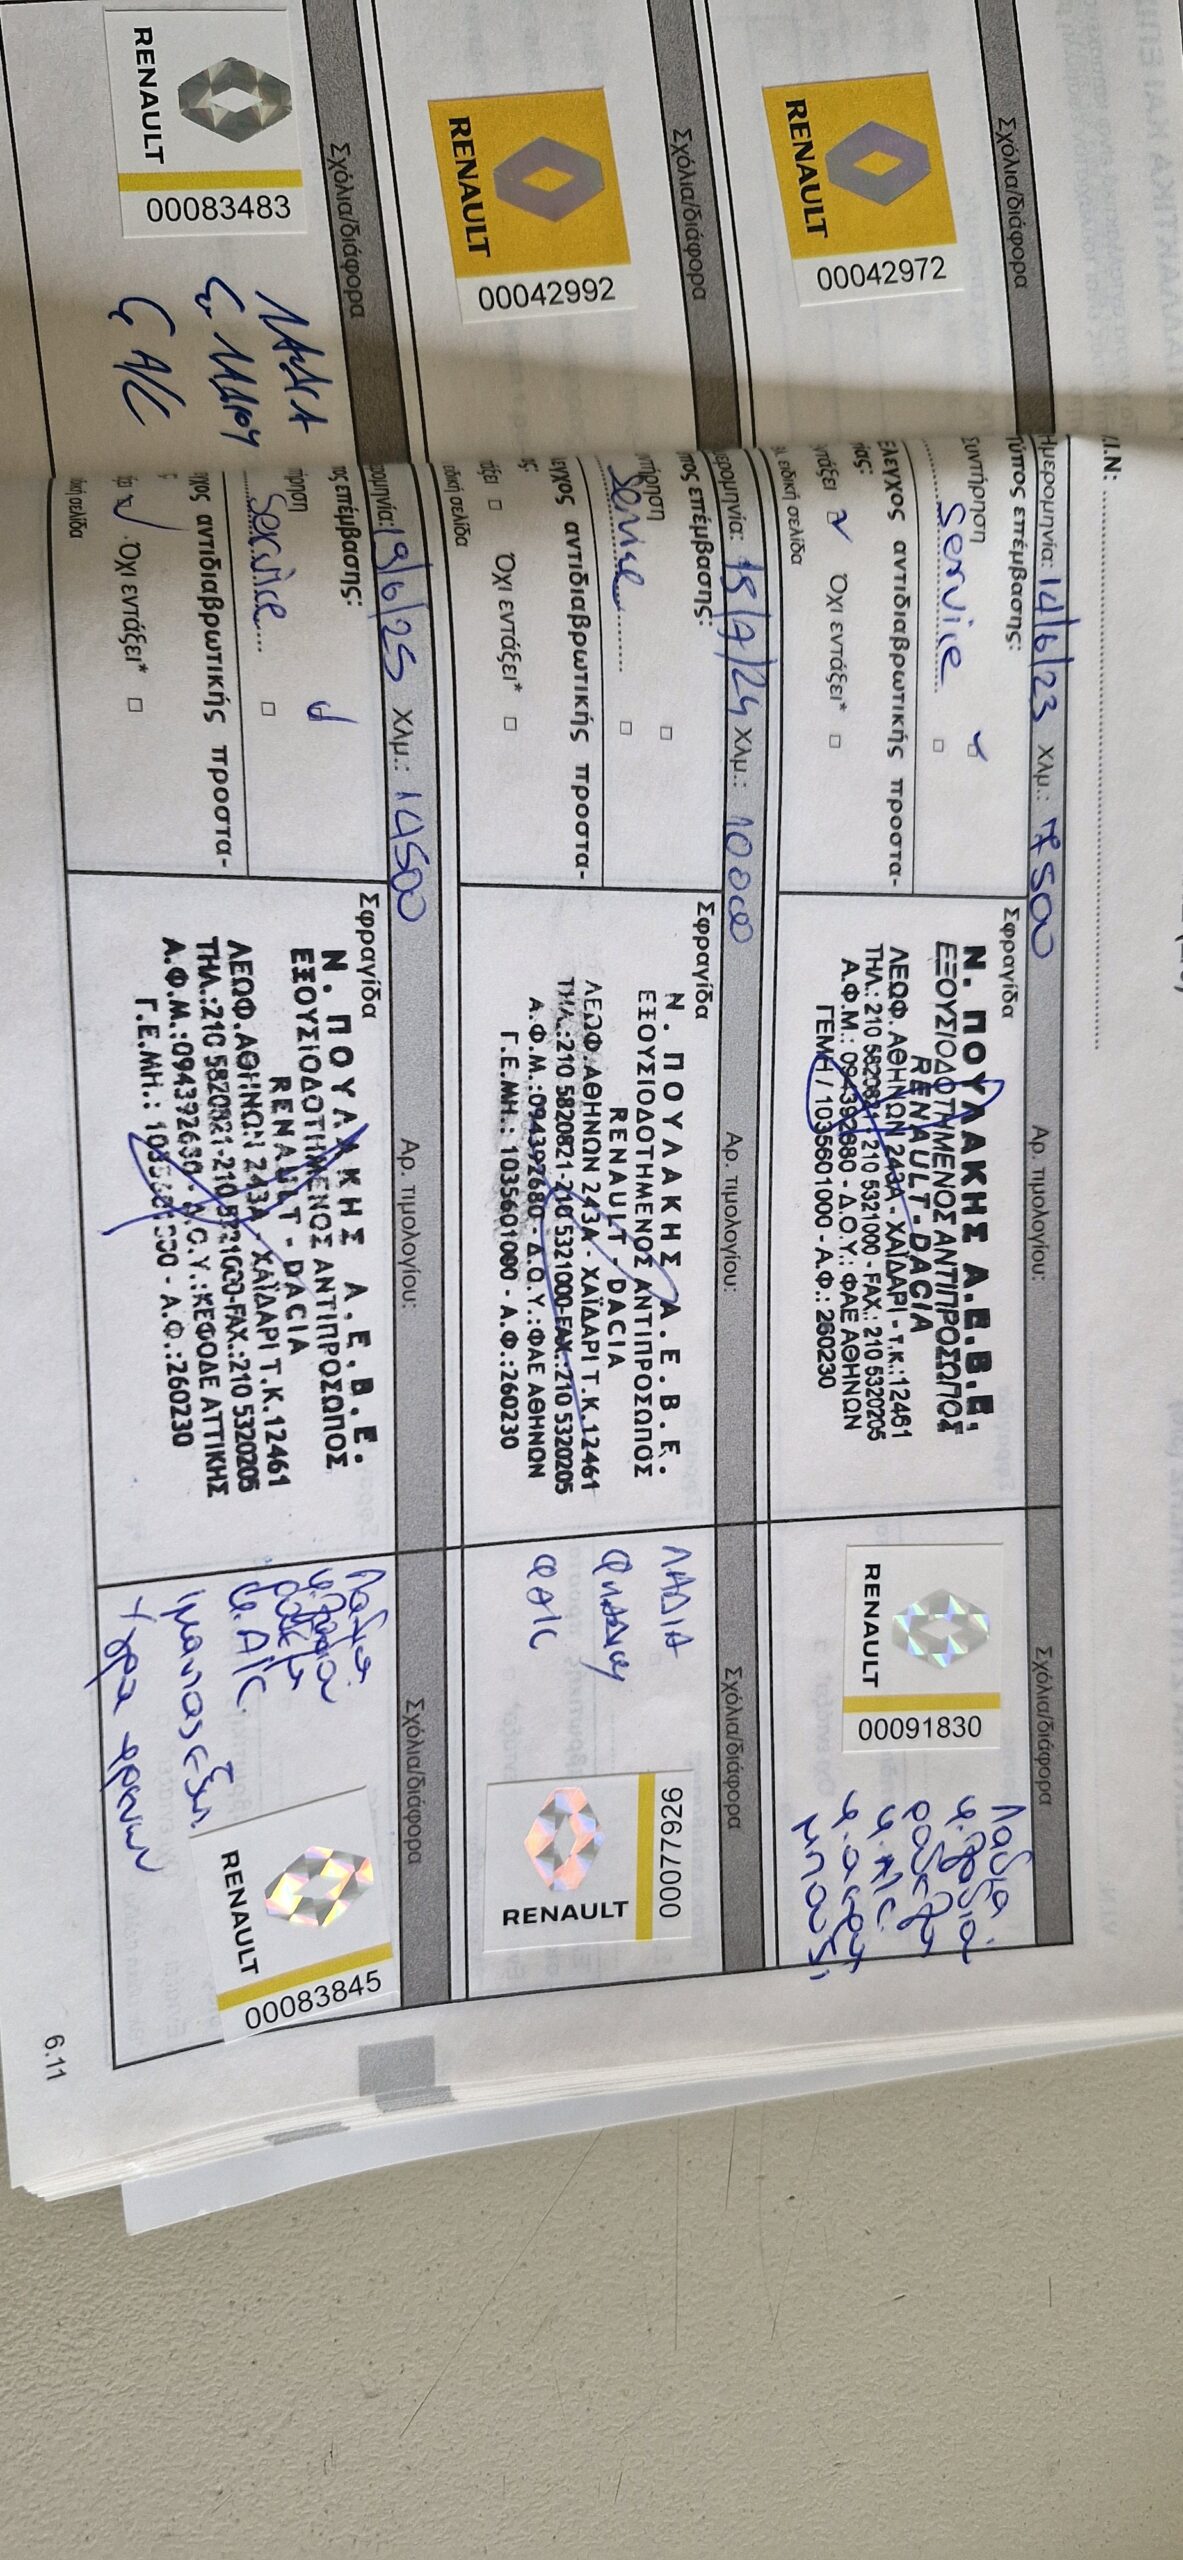 V.I.N: ........................
Σχόλια/διάφορα
RENAULT
00042972
Ημερομηνία: 14/6/23 Χλμ.: 7500
Αρ. τιμολογίου:
Σχόλια/διάφορα
Τύπος επέμβασης:
Συντήρηση
Service
Έλεγχος αντιδιαβρωτικής προστα-
Όχι εντάξει*
ειδική σελίδα
Σφραγίδα
Ν. ΠΟΥΛΑΚΗΣ Α.Ε.Β.Ε.
ΕΞΟΥΣΙΟΔΟΤΗΜΕΝΟΣ ΑΝΤΙΠΡΟΣΩΠΟΣ
RENAULT - DACIA
ΛΕΩΦ. ΑΘΗΝΩΝ 243Α - ΧΑΪΔΑΡΙ - Τ.Κ.:12461
ΤΗΛ.: 210 5820821 - 210 5321000 - FAX.: 210 5320205
Α.Φ.Μ.: 094392680 - Δ.Ο.Υ.: ΦΑΕ ΑΘΗΝΩΝ
ΓΕΜΗ / 1035601000 - Α.Φ.: 260230
RENAULT
00091830
Λάδια
φ. λαδιού
φ. A/C
Σχόλια/διάφορα
RENAULT
00042992
Ημερομηνία: 15/7/24 Χλμ.: 10000
Αρ. τιμολογίου:
Σχόλια/διάφορα
επέμβασης:
Service
αντιδιαβρωτικής προστα-
Όχι εντάξει*
ειδική σελίδα
Σφραγίδα
Ν. ΠΟΥΛΑΚΗΣ Α.Ε.Β.Ε.
ΕΞΟΥΣΙΟΔΟΤΗΜΕΝΟΣ ΑΝΤΙΠΡΟΣΩΠΟΣ
RENAULT - DACIA
ΛΕΩΦ.ΑΘΗΝΩΝ 243Α - ΧΑΪΔΑΡΙ Τ.Κ.12461
ΤΗΛ.:210 5820821-210 5321000-FAX.:210 5320205
Α.Φ.Μ.:094392680 - Δ.Ο.Υ.:ΦΑΕ ΑΘΗΝΩΝ
Γ.Ε.ΜΗ.: 1035601000 - Α.Φ.:260230
ΛΑΔΙΑ
Φ ΛΑΔΙΟΥ
Φ A/C
00077926
RENAULT
Σχόλια/διάφορα
RENAULT
00083483
ΛΑΔΙΑ
Φ ΛΑΔΙΟΥ
Φ A/C
19/6/25 Χλμ.: 14500
Αρ. τιμολογίου:
Σχόλια/διάφορα
επέμβασης:
Service
αντιδιαβρωτικής προστα-
Όχι εντάξει*
σελίδα
Σφραγίδα
Ν. ΠΟΥΛΑΚΗΣ Α.Ε.Β.Ε.
ΕΞΟΥΣΙΟΔΟΤΗΜΕΝΟΣ ΑΝΤΙΠΡΟΣΩΠΟΣ
RENAULT - DACIA
ΛΕΩΦ.ΑΘΗΝΩΝ 243Α - ΧΑΪΔΑΡΙ Τ.Κ.12461
ΤΗΛ.:210 5820821-210 5321000-FAX.:210 5320205
Α.Φ.Μ.:094392680 - Δ.Ο.Υ.:ΚΕΦΟΔΕ ΑΤΤΙΚΗΣ
Γ.Ε.ΜΗ.: 1035601000 - Α.Φ.:260230
Λάδια
φ. A/C
Υγρα φρενων
RENAULT
00083845
6.11